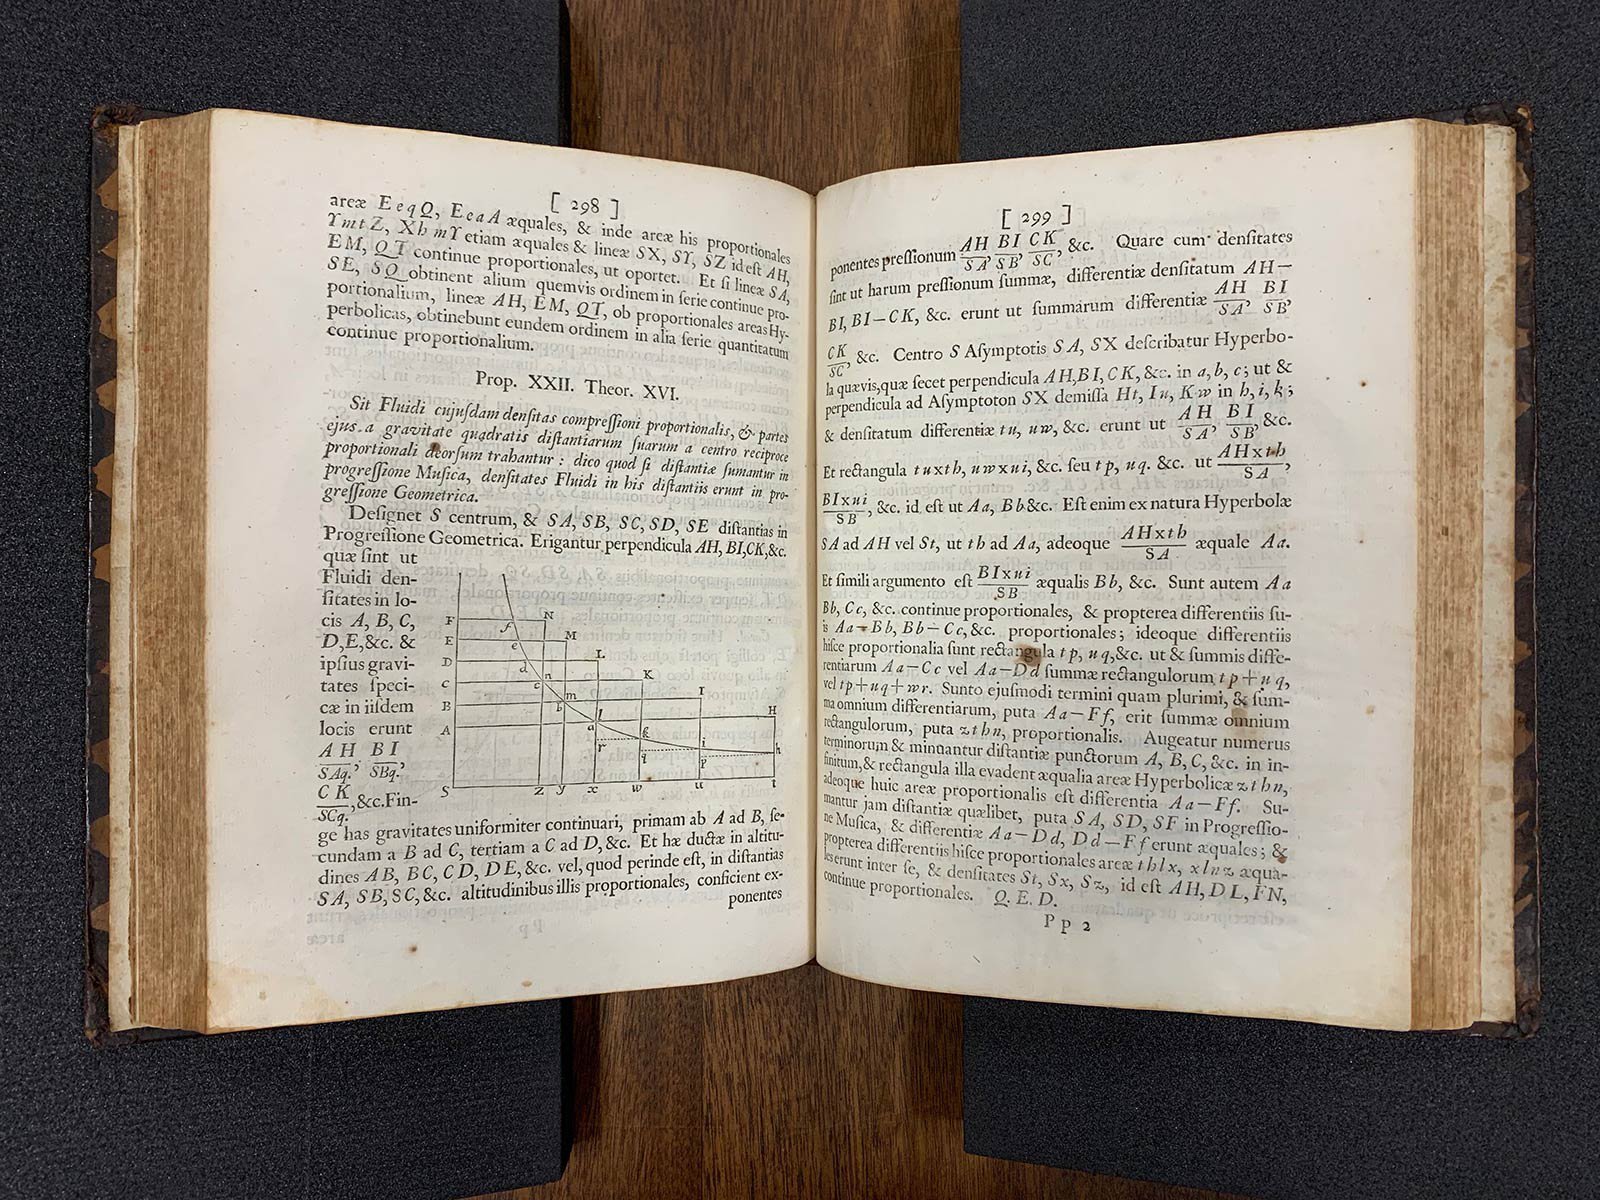 [ 298 ]
areæ EeqQ, EeaA æquales, & inde areæ his proportionales
YmtZ, XhmY etiam æquales & lineæ SX, SY, SZ id est AH,
EM, QT continue proportionales, ut oportet. Et si lineæ SA,
SE, SQ obtinent alium quemvis ordinem in serie continue pro-
portionalium, lineæ AH, EM, QT, ob proportionales areas Hy-
perbolicas, obtinebunt eundem ordinem in alia serie quantitatum
continue proportionalium.
Prop. XXII. Theor. XVI.
Sit Fluidi cujuſdam denſitas compreſſioni proportionalis, & partes
ejus a gravitate quadratis diſtantiarum ſuarum a centro reciproce
proportionali deorſum trahantur : dico quod ſi diſtantiæ ſumantur in
progreſſione Muſica, denſitates Fluidi in his diſtantiis erunt in pro-
greſſione Geometrica.
Deſignet S centrum, & SA, SB, SC, SD, SE diſtantias in
Progreſſione Geometrica. Erigantur perpendicula AH, BI, CK, &c.
quæ ſint ut
Fluidi den-
ſitates in lo-
cis A, B, C,
D, E, &c. &
ipſius gravi-
tates ſpeci-
cæ in iiſdem
locis erunt
AH/SAq., BI/SBq.,
CK/SCq., &c. Fin-
F N
f M
E e
D d L
C c n K
B b m I
A a l H
r k
q i h
p
S Z y x w u t
ge has gravitates uniformiter continuari, primam ab A ad B, ſe-
cundam a B ad C, tertiam a C ad D, &c. Et hæ ductæ in altitu-
dines AB, BC, CD, DE, &c. vel, quod perinde eſt, in diſtantias
SA, SB, SC, &c. altitudinibus illis proportionales, conficient ex-
ponentes
[ 299 ]
ponentes preſſionum AH/SA, BI/SB, CK/SC, &c. Quare cum denſitates
ſint ut harum preſſionum ſummæ, differentiæ denſitatum AH—
BI, BI—CK, &c. erunt ut ſummarum differentiæ AH/SA, BI/SB,
CK/SC, &c. Centro S Aſymptotis SA, SX deſcribatur Hyperbo-
la quævis, quæ ſecet perpendicula AH, BI, CK, &c. in a, b, c; ut &
perpendicula ad Aſymptoton SX demiſſa Ht, Iu, Kw in h, i, k;
& denſitatum differentiæ tu, uw, &c. erunt ut AH/SA, BI/SB, &c.
Et rectangula tu×th, uw×ui, &c. ſeu tp, uq. &c. ut AH×th/SA,
BI×ui/SB, &c. id eſt ut Aa, Bb &c. Eſt enim ex natura Hyperbolæ
SA ad AH vel St, ut th ad Aa, adeoque AH×th/SA æquale Aa.
Et ſimili argumento eſt BI×ui/SB æqualis Bb, &c. Sunt autem Aa
Bb, Cc, &c. continue proportionales, & propterea differentiis ſu-
is Aa—Bb, Bb—Cc, &c. proportionales; ideoque differentiis
hiſce proportionalia ſunt rectangula tp, uq, &c. ut & ſummis diffe-
rentiarum Aa—Cc vel Aa—Dd ſummæ rectangulorum tp+uq,
vel tp+uq+wr. Sunto ejuſmodi termini quam plurimi, & ſum-
ma omnium differentiarum, puta Aa—Ff, erit ſummæ omnium
rectangulorum, puta zthn, proportionalis. Augeatur numerus
terminorum & minuantur diſtantiæ punctorum A, B, C, &c. in in-
finitum, & rectangula illa evadent æqualia areæ Hyperbolicæ zthn,
adeoque huic areæ proportionalis eſt differentia Aa—Ff. Su-
mantur jam diſtantiæ quælibet, puta SA, SD, SF in Progreſſio-
ne Muſica, & differentiæ Aa—Dd, Dd—Ff erunt æquales; &
propterea differentiis hiſce proportionales areæ thlx, xlnz æqua-
les erunt inter ſe, & denſitates St, Sx, Sz, id eſt AH, DL, FN,
continue proportionales. Q. E. D.
Pp 2